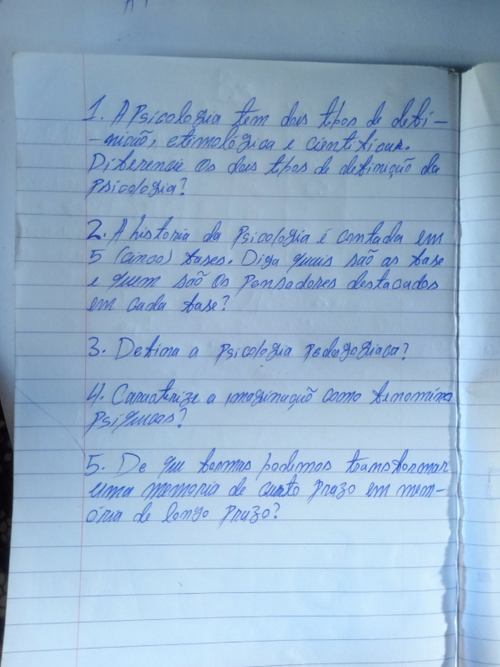 1. A Psicologia tem dois tipos de defi-
-nição, etimológica e cientifica.
Diferencie os dois tipos de definição da
psicologia?
2. A historia da psicologia é contada em
5 (cinco) fases. Diga quais são as fase
e quem são os pensadores destacados
em cada fase?
3. Defina a psicologia pedagogiaca?
4. Caracterize a imaginação como fenomino
psiquicos?
5. De que formas podemos transformar
uma memoria de curto prazo em mem-
ória de longo prazo?